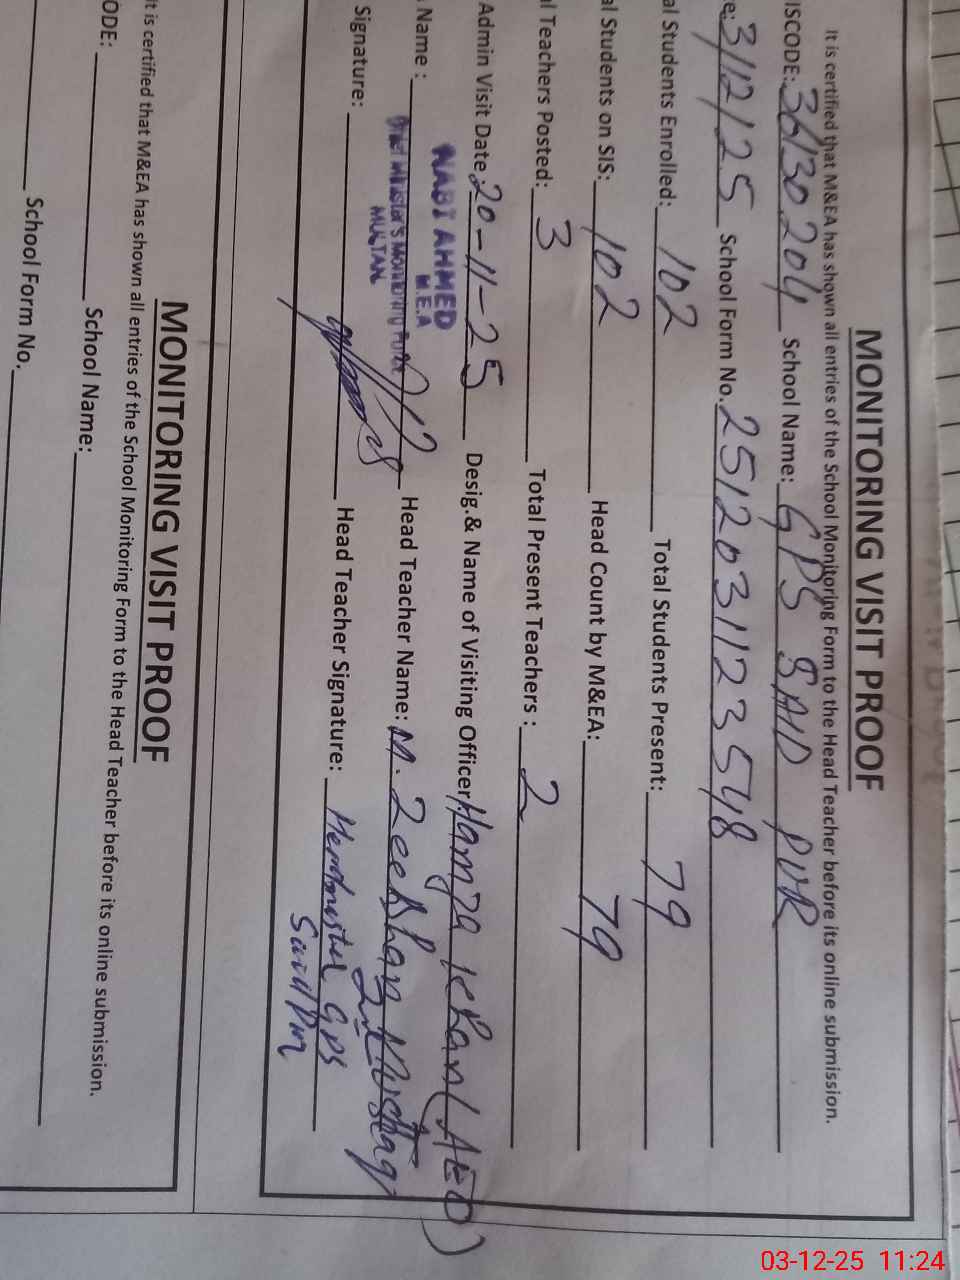 MONITORING VISIT PROOF
It is certified that M&EA has shown all entries of the School Monitoring Form to the Head Teacher before its online submission.
ISCODE: 36130204 School Name: GPS SAID PUR
e: 3/12/25 School Form No. 2512031123548
al Students Enrolled: 102 Total Students Present: 79
al Students on SIS: 102 Head Count by M&EA: 79
al Teachers Posted: 3 Total Present Teachers : 2
Admin Visit Date: 20-11-25 Desig.& Name of Visiting Officer: Hamza Khan (AEO)
Name : NABI AHMED Head Teacher Name: M. Zeeshan Mushtaq
M.E.A
Chief Minister's Monitoring Force
MULTAN
Signature: Head Teacher Signature:
Headmaster GPS
Said Pur
MONITORING VISIT PROOF
It is certified that M&EA has shown all entries of the School Monitoring Form to the Head Teacher before its online submission.
ODE: School Name:
School Form No.
03-12-25 11:24